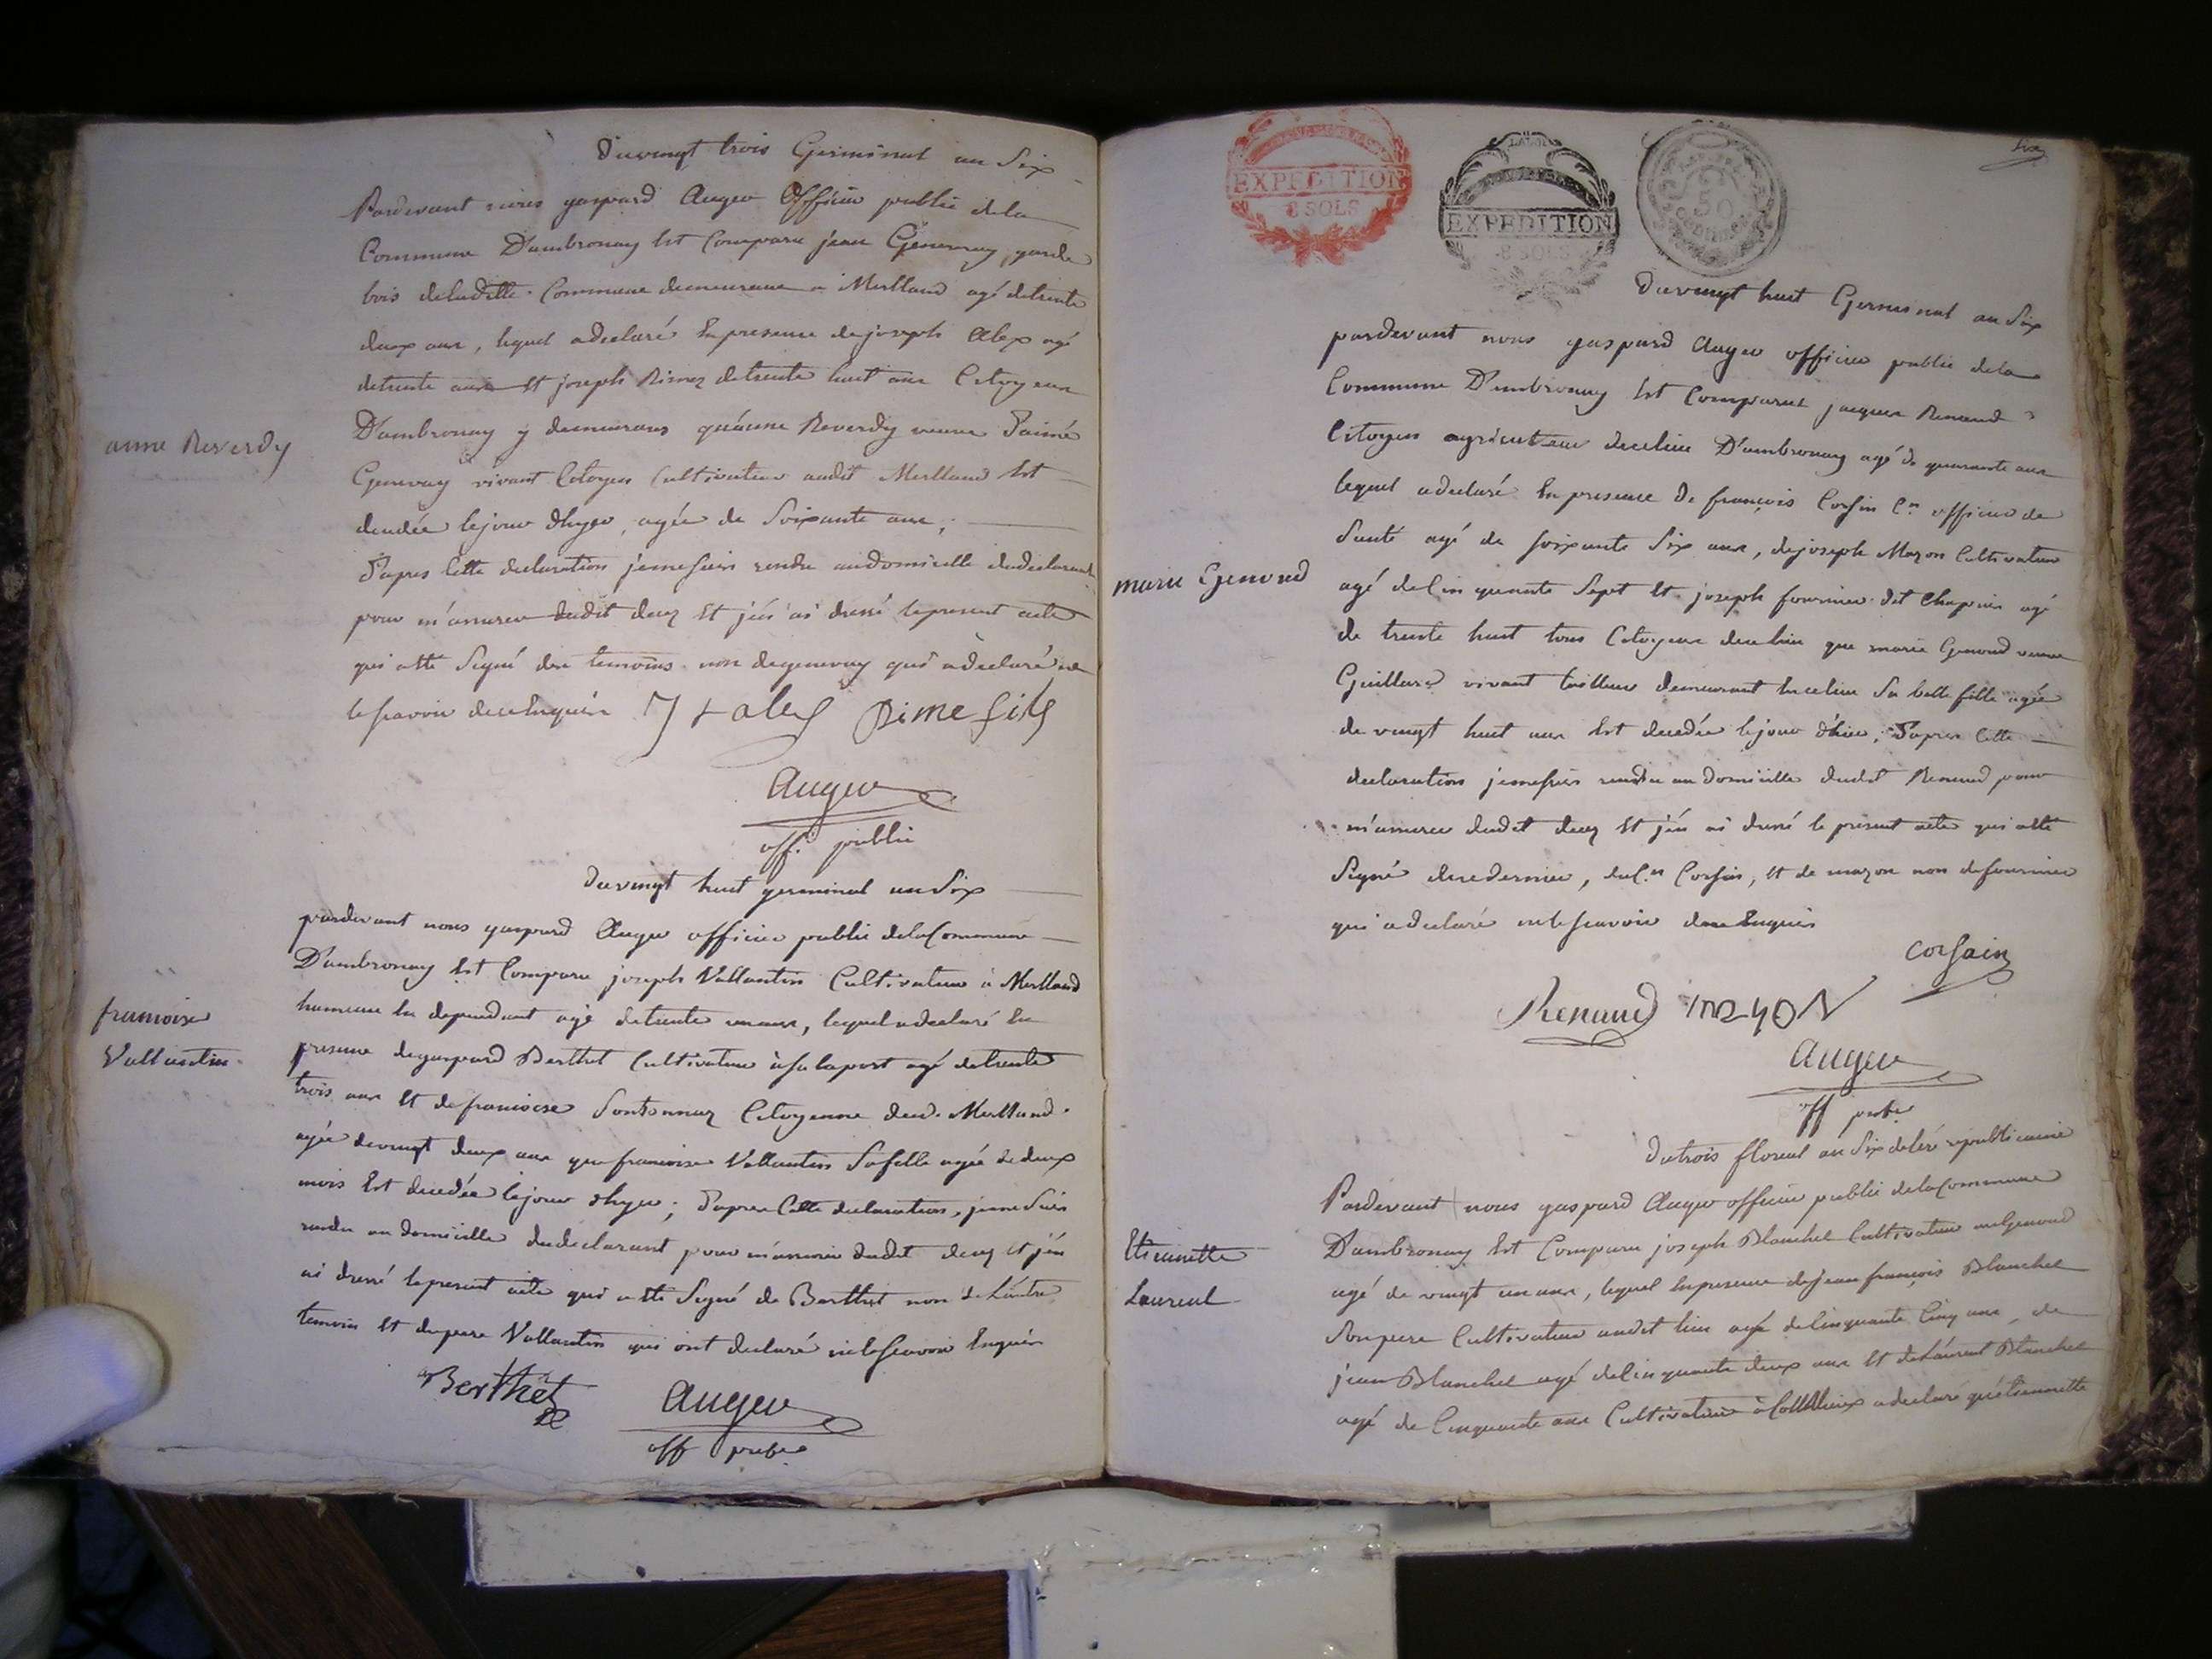 Du vingt trois Germinal an Six
Pardevant nous gaspard Auger Officier public de la
Commune D'ambronay Est Comparu jean Genevay, garde
bois de laditte Commune demeurant à Merlland agé de trente
deux ans, lequel a déclaré En presence de joseph Alex agé
de trente ans Et joseph Dimez de trente huit ans Citoyens
anne Reverdy
D'ambronay y demeurans qu'anne Reverdy veuve D'aimé
Genevay vivant Citoyen Cultivateur audit Merlland Est
decedée le jour d'hyer, agée de Soixante ans,
D'apres Cette declaration je me suis rendu au domicille du declarant
pour m'assurer dudit decez Et j'en ai dressé le present acte
qui a été Signé des temoins non de genevay qui a declaré ne
le scavoir de ce Enquis J + alex Dime fils
Auger
off. public
Du vingt huit germinal an Six
pardevant nous gaspard Auger officier public de la Commune
D'ambronay Est Comparu joseph Vallantin Cultivateur à Merlland
françoise
Vallantin
hameau En dependant agé de trente un ans, lequel a declaré En
presence de gaspard Berthet Cultivateur à Salaport agé de trente
trois ans Et de françoise Dontonnaz Citoyenne dud. Merlland
agée de vingt deux ans que françoise Vallantin Sa fille agée de deux
mois Est decedée le jour d'hyer; D'apres Cette declaration, je me Suis
rendu au domicille du declarant pour m'assurer dudit decez Et j'en
ai dressé le present acte qui a été Signé de Berthet non de L'autre
temoin Et du pere Vallantin qui ont declaré ne le scavoir Enquis
Berthet
Auger
off public
six
EXPEDITION
8 SOLS
EXPEDITION
8 SOLS
50
Du vingt huit Germinal an Six
pardevant nous gaspard Auger officier public de la
Commune D'ambronay Est Comparut jacques Renaud
Citoyen agriculteur de ce lieu D'ambronay agé de quarante ans
lequel a declaré En presence de françois Corsin Cn officier de
Santé agé de soixante Six ans, de joseph Mazon Cultivateur
marie Genoud
agé de Cinquante Sept Et joseph fournier dit Chapuis agé
de trente huit tous Citoyens de ce lieu que marie Genoud veuve
Guillard vivant tailleur demeurant En ce lieu Sa belle fille agée
de vingt huit ans Est decedée le jour d'hier; D'apres Cette
declaration je me suis rendu au domicille dudit Renaud pour
m'assurer dudit decez Et j'en ai dressé le présent acte qui a été
Signé de ce dernier, du Cn Corsin, Et de mazon non de fournier
qui a declaré ne le scavoir de ce Enquis
Corsain
Renaud mazon
Auger
off public
Du trois floreal an Six de l'ere republicaine
Pardevant nous gaspard Auger officier public de la Commune
Etiennette
Laurent
D'ambronay Est Comparu joseph Blanchet Cultivateur au Genoud
agé de vingt un ans, lequel En presence de jean françois Blanchet
Son pere Cultivateur audit lieu agé de Cinquante Cinq ans, de
jean Blanchet agé de Cinquante deux ans Et de Laurent Blanchet
agé de Cinquante ans Cultivateur à a declaré qu'etiennette